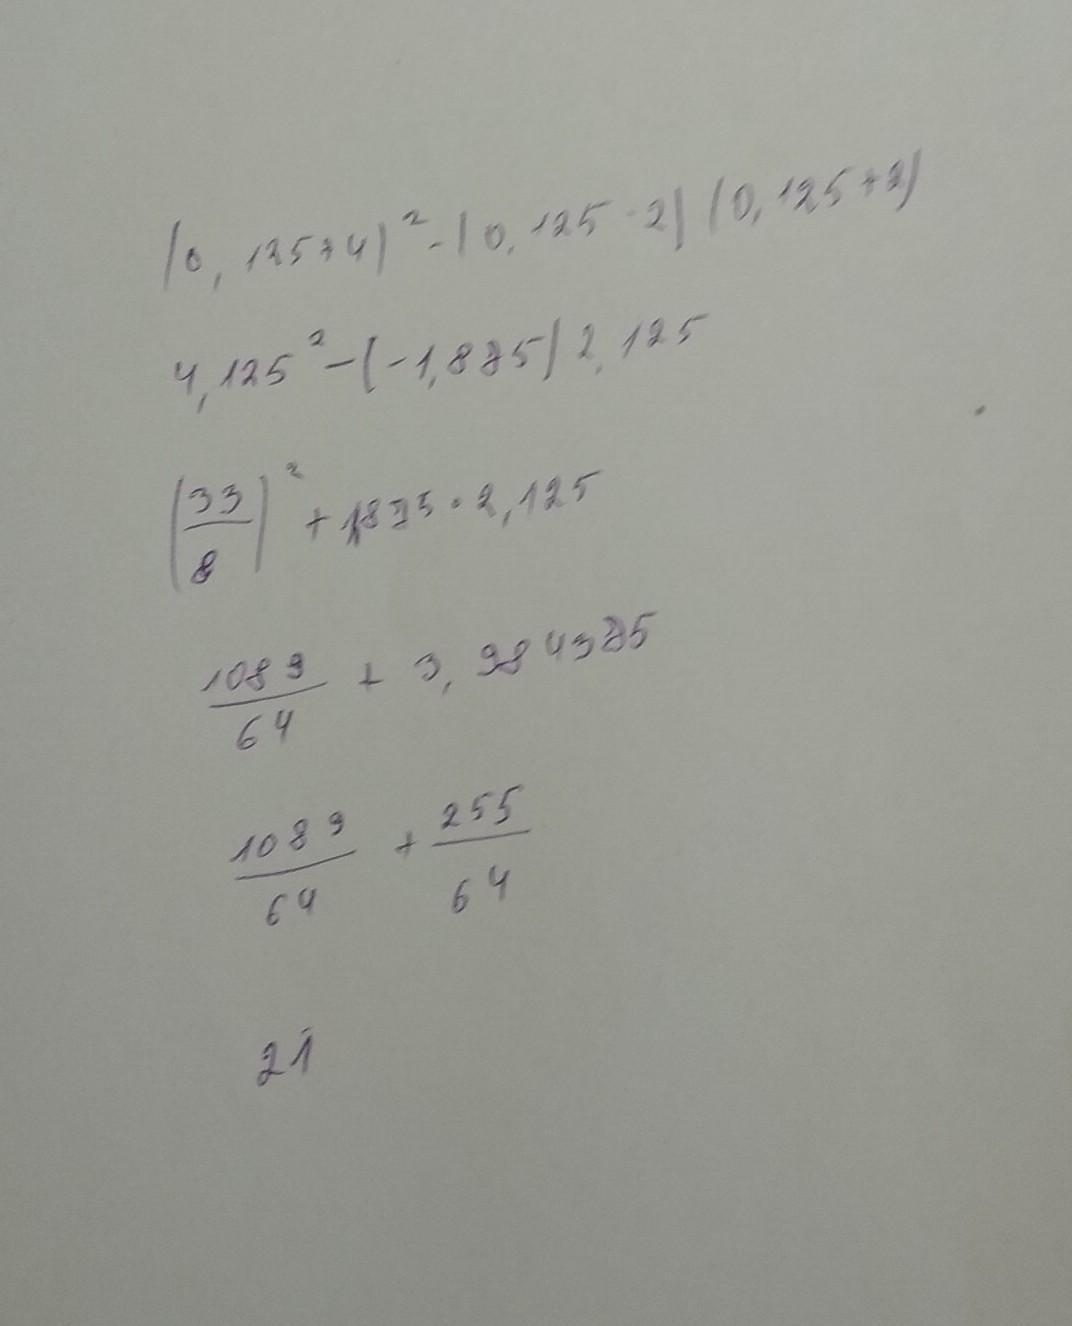 (0,125+4)² - (0,125-2) (0,125+2)
4,125² - (-1,875) 2,125
(33/8)² + 1,875 · 2,125
1089/64 + 3,984375
1089/64 + 255/64
21